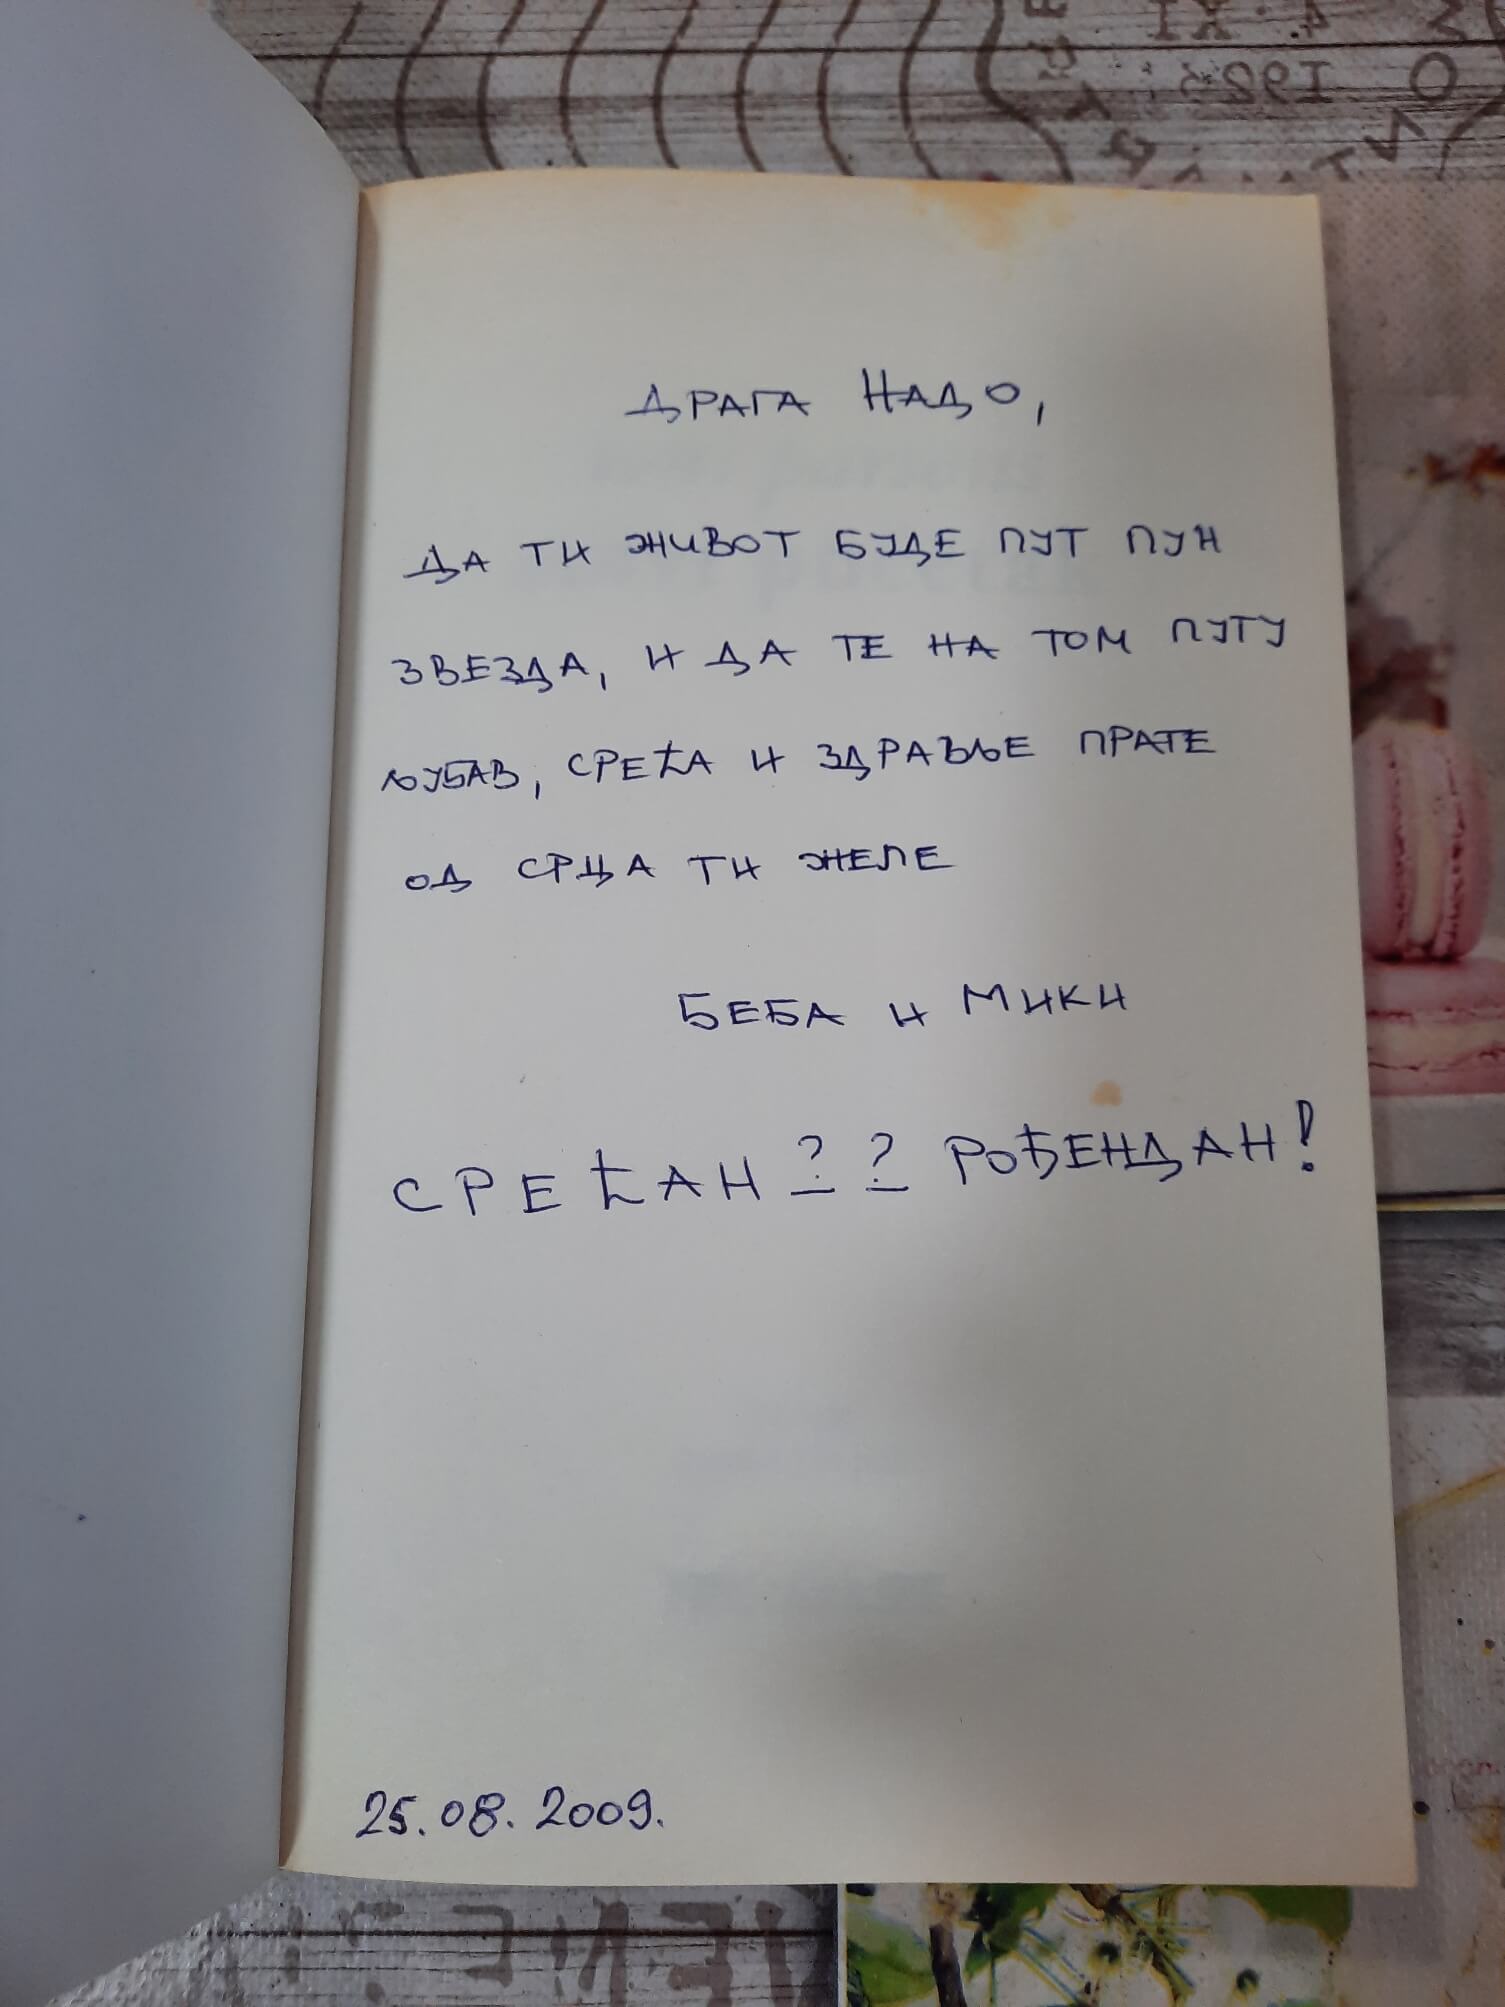 ДРАГА НАДО,
ДА ТИ ЖИВОТ БУДЕ ПУТ ПУН
ЗВЕЗДА, И ДА ТЕ НА ТОМ ПУТУ
ЉУБАВ, СРЕЋА И ЗДРАВЉЕ ПРАТЕ
ОД СРЦА ТИ ЖЕЛЕ
БЕБА И МИКИ
СРЕЋАН ? ? РОЂЕНДАН!
25.08.2009.